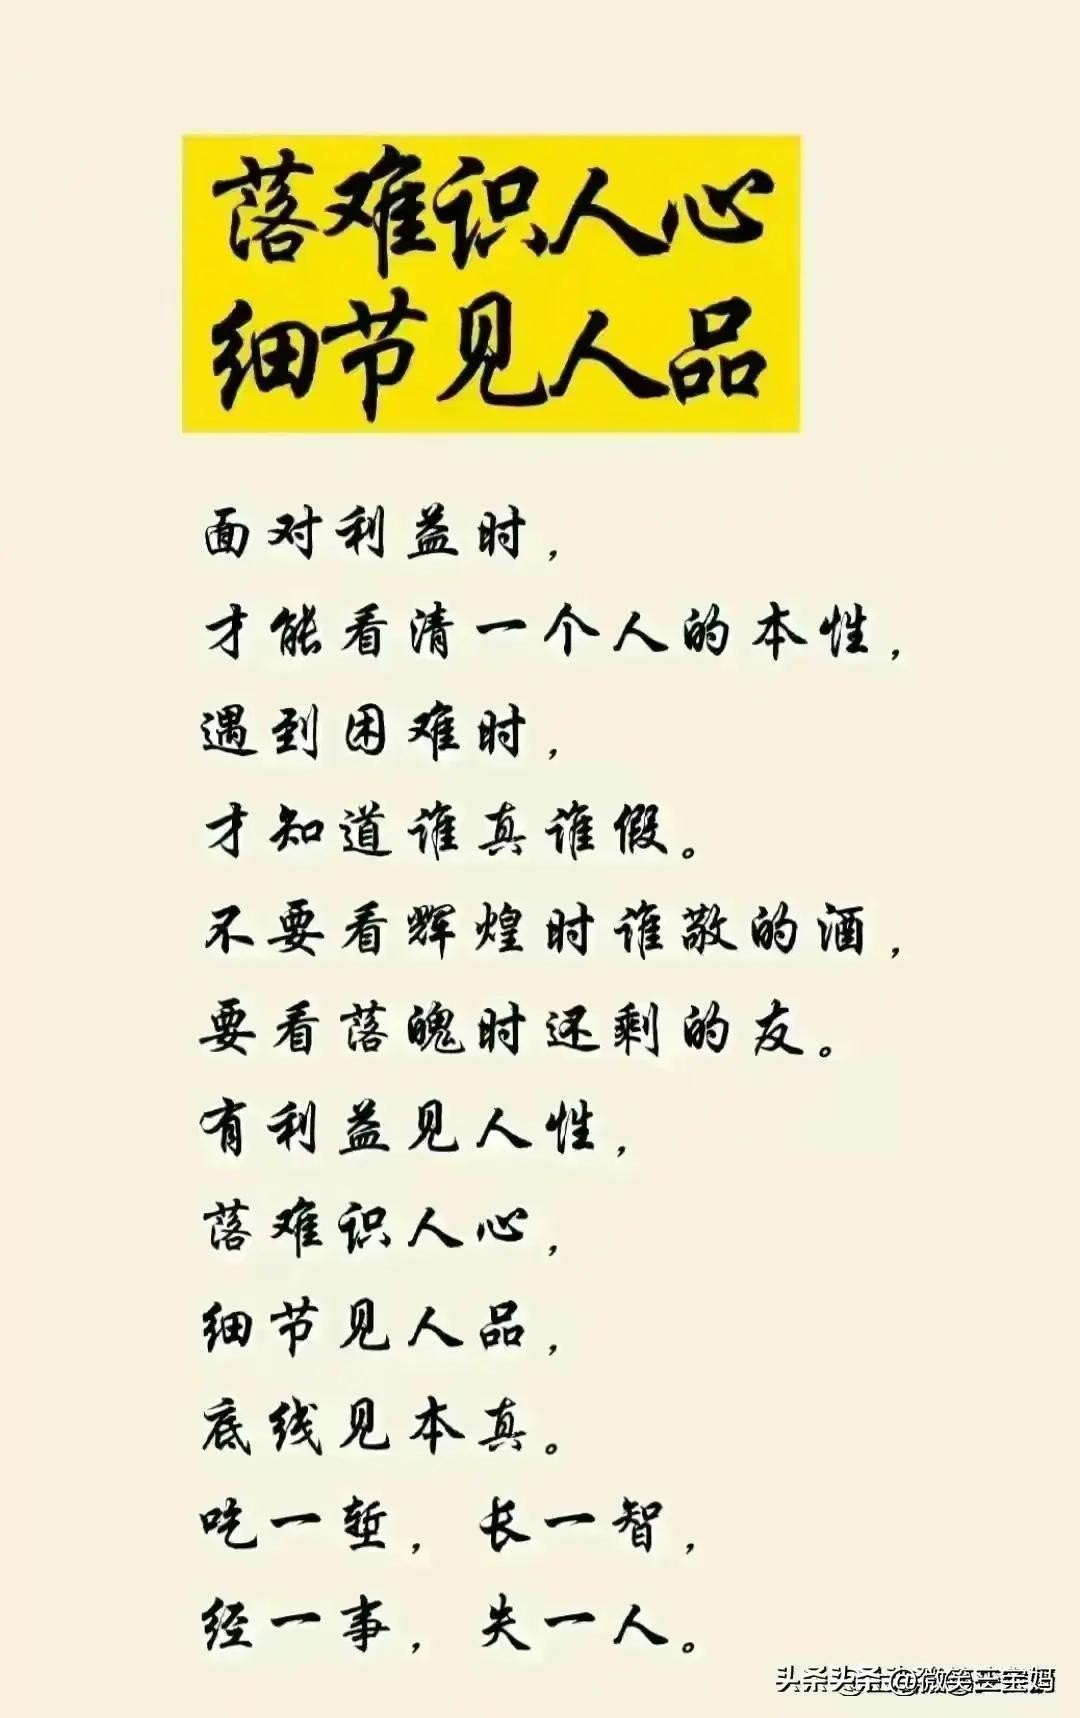 落难识人心
细节见人品
面对利益时，
才能看清一个人的本性，
遇到困难时，
才知道谁真谁假。
不要看辉煌时谁敬的酒，
要看落魄时还剩的友。
有利益见人性，
落难识人心，
细节见人品，
底线见本真。
吃一堑，长一智，
经一事，失一人。
头条
@微笑
宝妈